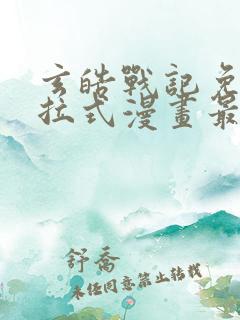 玄皓戰記免
拉式漫畫最
舒喬
未經同意禁止轉載